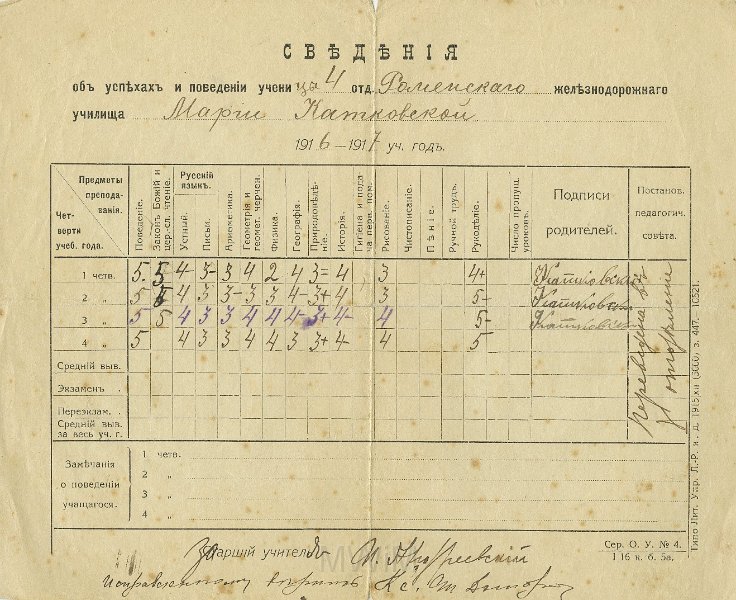 СВѢДѢНІЯ
объ успѣхахъ и поведеніи учени цы 4 отд. Роменскаго желѣзнодорожнаго
училища Маріи Катковской
1916–1917 уч. годъ.
Предметы преподаванія.
Четверти учеб. года.
Поведеніе.
Законъ Божій и цер.-сл. чтеніе.
Русскій языкъ.
Устный.
Письм.
Ариѳметика.
Геометрія и геомет. черчен.
Физика.
Географія.
Природовѣдѣніе.
Исторія.
Гигіена и подача перв. пом.
Рисованіе.
Чистописаніе.
Пѣніе.
Ручной трудъ.
Рукодѣліе.
Число пропущ. уроковъ.
Подписи родителей.
Постанов. педагогич. совѣта.
1 четв. 5. 5 4 3 4 2 4 3= 4 3 4+ Катковская
2 „ 5 5 4 3 3– 3 3 4– 3+ 4 3 5– Катковская
3 „ 5 5 4 3 3 4 4 4– 3+ 4– 4 5– Катковская
4 „ 5 4 3 3 4 4 3 3+ 4– 4 5
Переведена въ отдѣленіе
Средній выв.
Экзаменъ .
Переэкзам. .
Средній выв. за весь уч. г.
Замѣчанія о поведеніи учащагося.
1 четв.
2 „
3 „
4 „
Старшій учитель
Сер. О. У. № 4.
1 16 к. б. 5а.
Типо Лит. Укр. Л.-Р. и. д. 1915.XII (5000) з. 447. 10521.